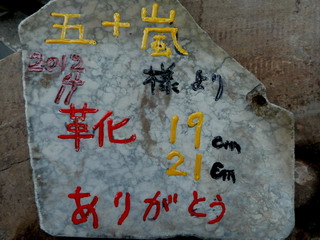 五十嵐
2012
様より
革化
19cm
21cm
ありがとう